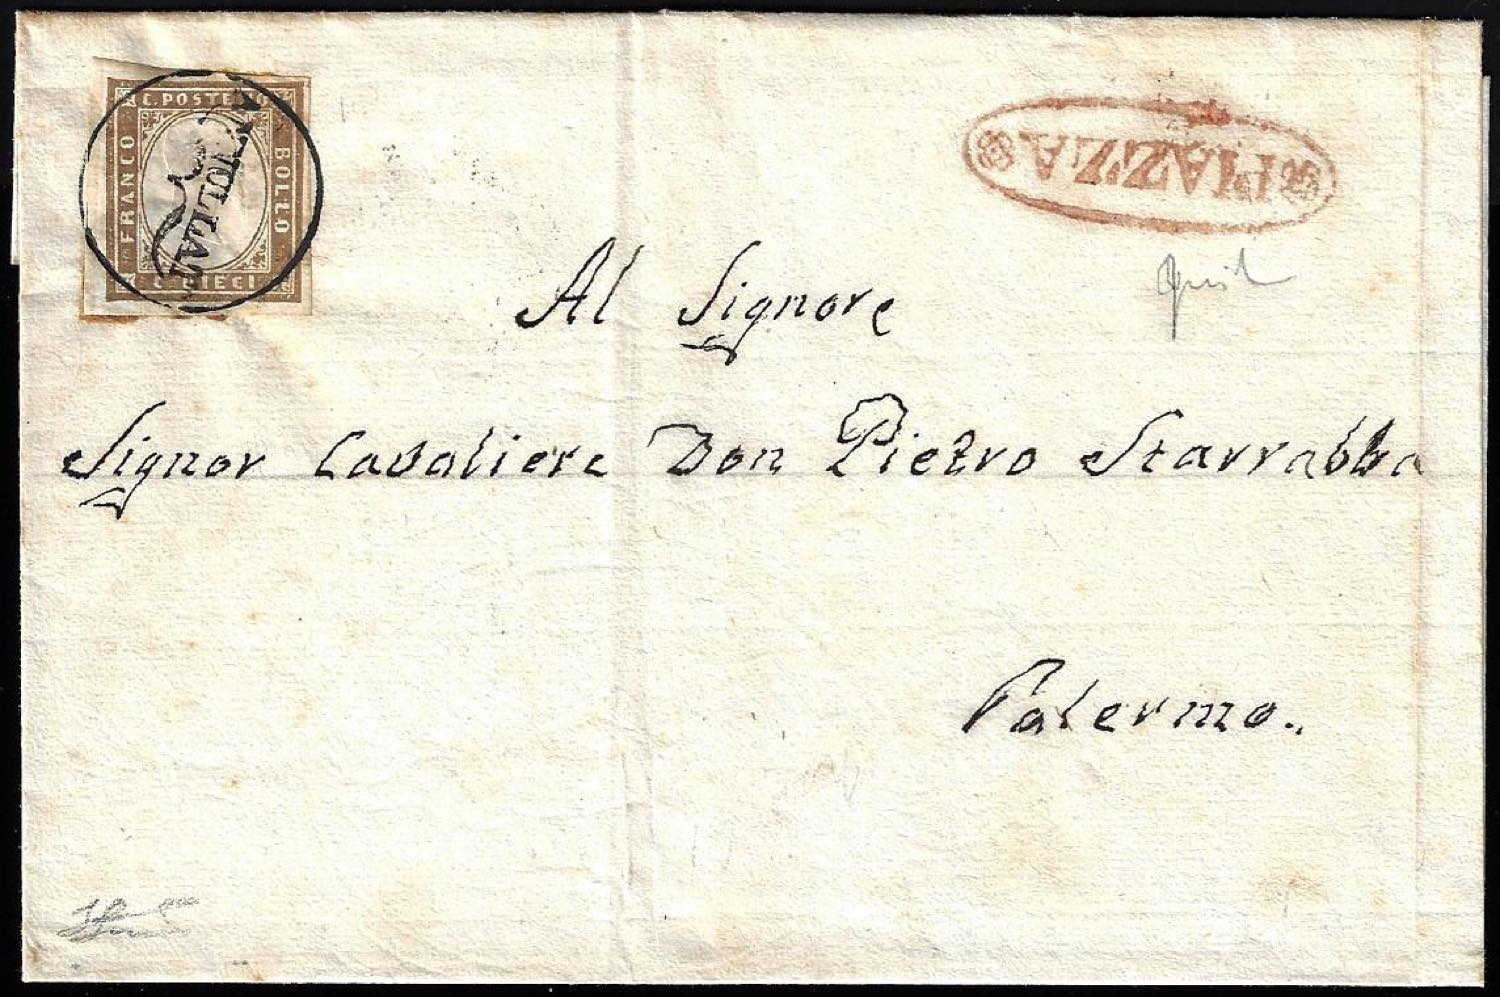 C. POSTE 10
FRANCO
BOLLO
C. DIECI
ANNULLATO
PIAZZA
Al Signore
Signor Cavaliere Don Pietro Starrabba
Palermo.